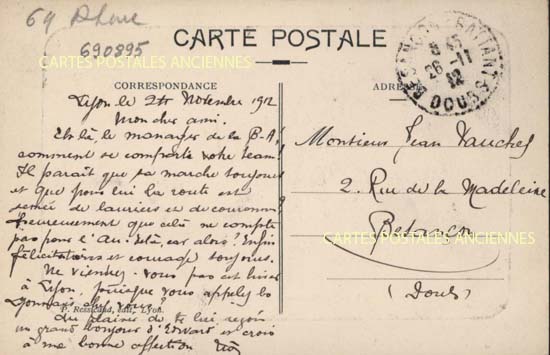 69 Rhone
690895
CARTE POSTALE
CARTES POSTALES ANCIENNES
CORRESPONDANCE
Lyon le 24 Novembre 1912
Mon cher ami.
Eh là, le manager de la B-A!
comment se comporte votre team!
Il paraît que sa marche toujours
et que pour lui la route est
semée de lauriers et de couronnes!
heureusement que cela ne compte
pas pour l'Au. car alors! Enfin
félicitations et courage toujours.
Ne viennez-vous pas cet hiver
à Lyon, puisque vous appelez
Lyonnais chez vous?
du plaisir de te lire reçois
un grand bonjour d'Edouard et crois
à ma bonne affection
P. Ressicaud, édit. Lyon.
ADRESSE
BESANÇON-BATTANT
26-11
12
DOUBS
Monsieur Jean Vauchel
2. Rue de la Madeleine
Besançon
CARTES POSTALES ANCIENNES
(Doubs)